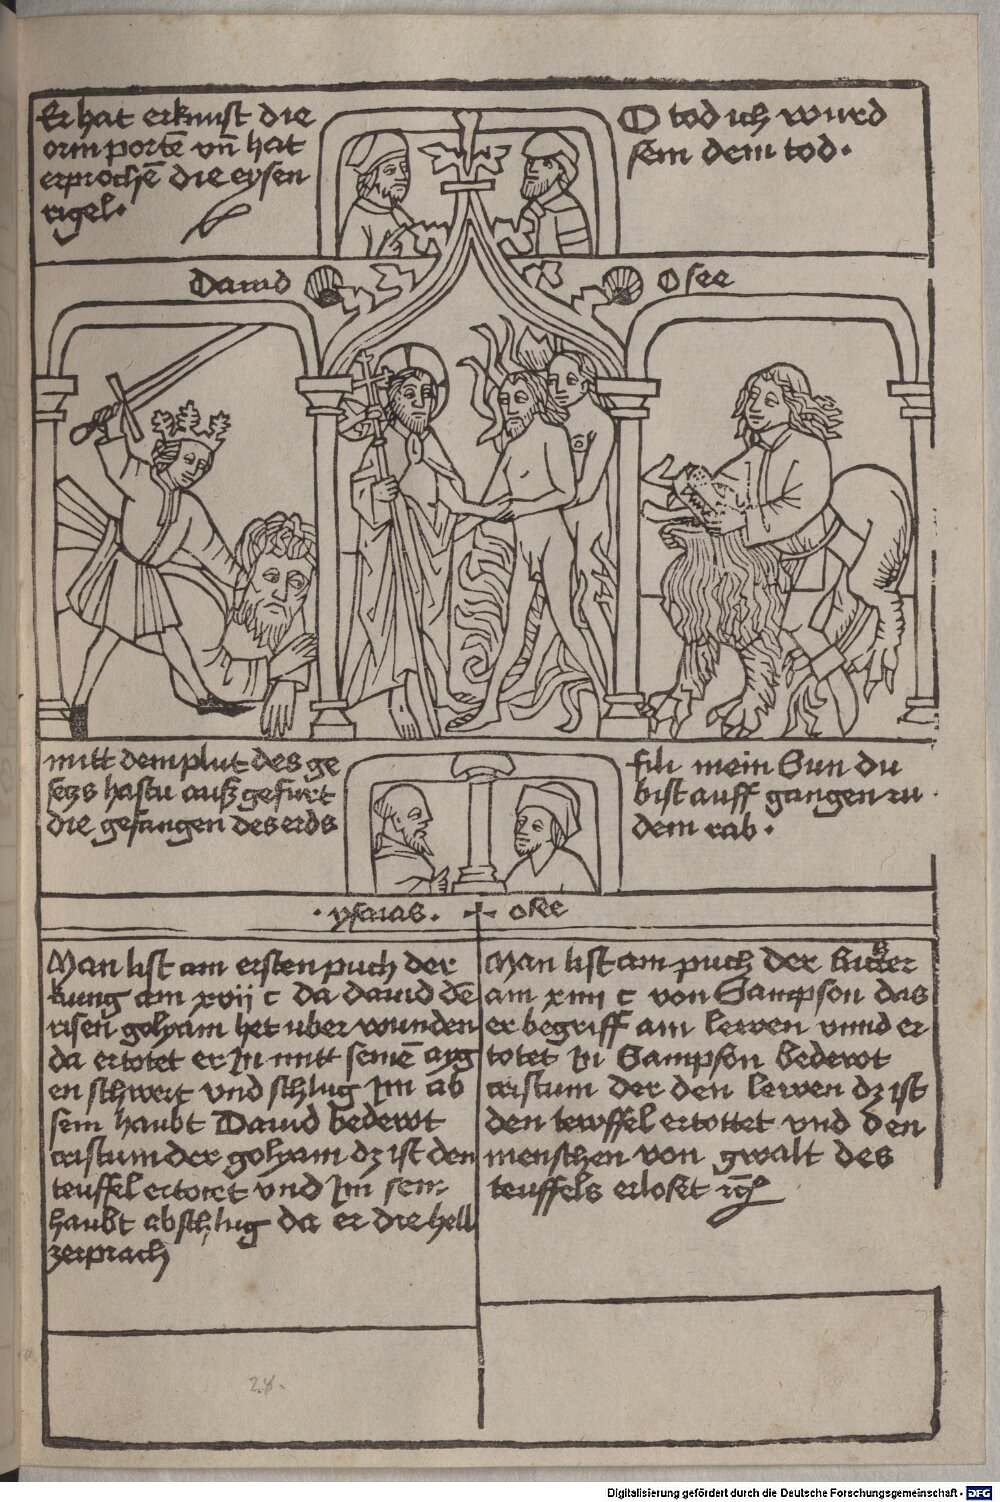 Er hat erknust die
orin porte͂ vn͂ hat
erproche͂ die eysen
rigel.
O tod ich wurd
sein dem tod.
Dauid
Osee
mitt dem plut des ge
setzs hastu auß gefurt
die gefangen des erds
fili mein Sun du
bist auff gangen zu
dem rab.
. ysaias . + osee
Man list am ersten puch der
kung am xvij c da dauid de͂
risen golyam het uber wunden
da ertotet er In mitt seine͂ ayg
en schwert vnd schlug Im ab
sein haubt Dauid bedewt
cristum der golyam dz ist den
teuffel ertotet vnd Im sein
haubt abschlug da er die hell
zerprach
Man list am puch der Richter
am xiiij c von Sampson das
er begriff am lewen vnnd er
totet In Sampson bedewt
cristum der den lewen dz ist
den tewffel ertottet vnd den
menschen von gwalt des
teuffels erloset
28.
Digitalisierung gefördert durch die Deutsche Forschungsgemeinschaft - DFG